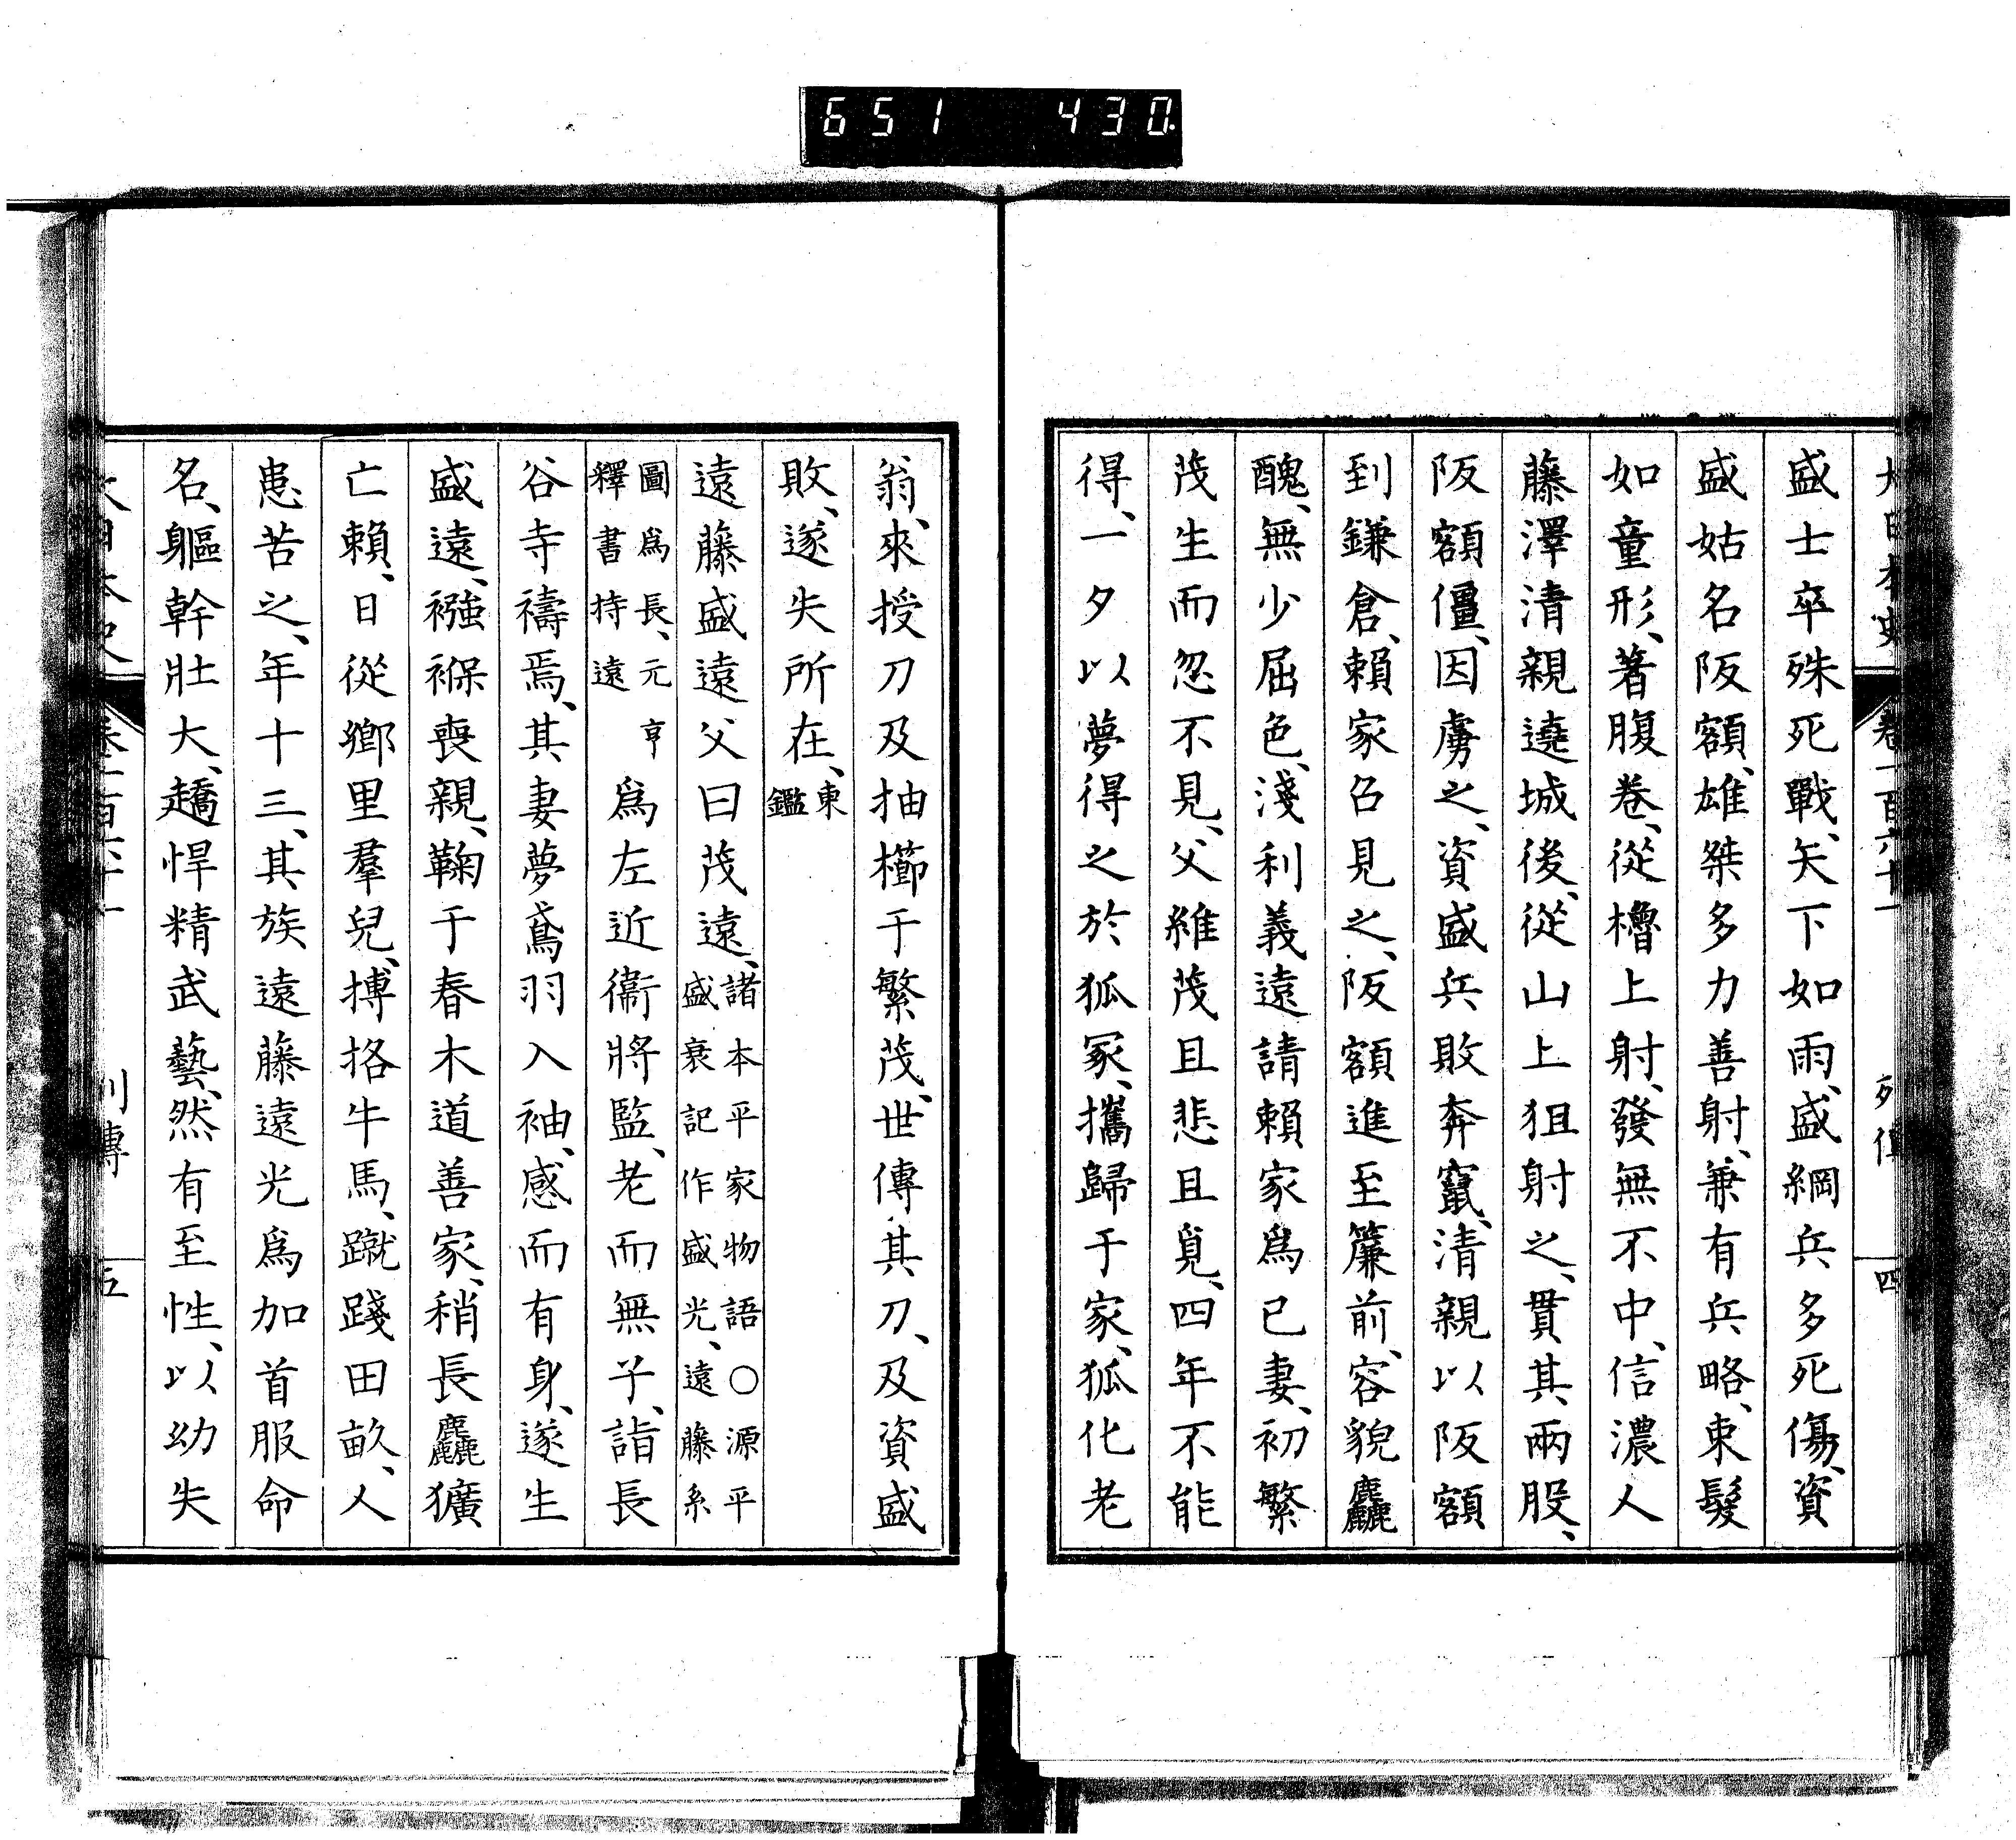 651 430
大日本史 卷一百六十一 列傳 四
盛士卒殊死戰、矢下如雨、盛綱兵多死傷、資
盛姑名阪額、雄桀多力善射、兼有兵略、束髮
如童形、著腹卷、從櫓上射、發無不中、信濃人
藤澤清親遶城後、從山上狙射之、貫其兩股、
阪額僵、因虜之、資盛兵敗奔竄、清親以阪額
到鎌倉、賴家召見之、阪額進至簾前、容貌麤
醜、無少屈色、淺利義遠請賴家爲已妻、初繁
茂生而忽不見、父維茂且悲且覓、四年不能
得、一夕以夢得之於狐冢、攜歸于家、狐化老
翁、來授刀及抽櫛于繁茂、世傳其刀、及資盛
敗、遂失所在、東鑑
遠藤盛遠父曰茂遠、諸本平家物語○源平盛衰記作盛光、遠藤系
圖爲長、元亨釋書持遠爲左近衞將監、老而無子、詣長
谷寺禱焉、其妻夢鳶羽入袖、感而有身、遂生
盛遠、襁褓喪親、鞠于春木道善家、稍長麤獷
亡賴、日從鄉里羣兒、搏挌牛馬、蹴踐田畝、人
患苦之、年十三、其族遠藤遠光爲加首服命
名、軀幹壯大、趫悍精武藝、然有至性、以幼失
大日本史 卷一百六十一 列傳 五